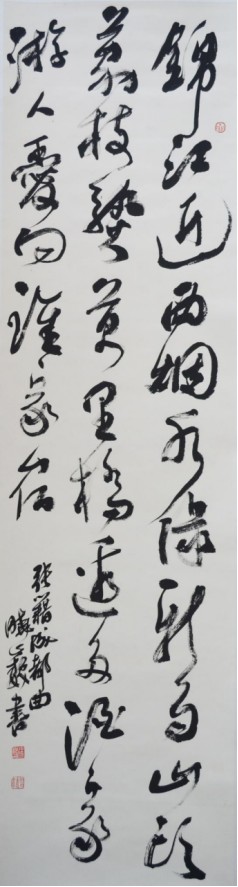 錦江近西烟水綠新雨山頭
荔枝熟萬里橋邊多酒家
游人愛向誰家宿
張籍成都曲
書